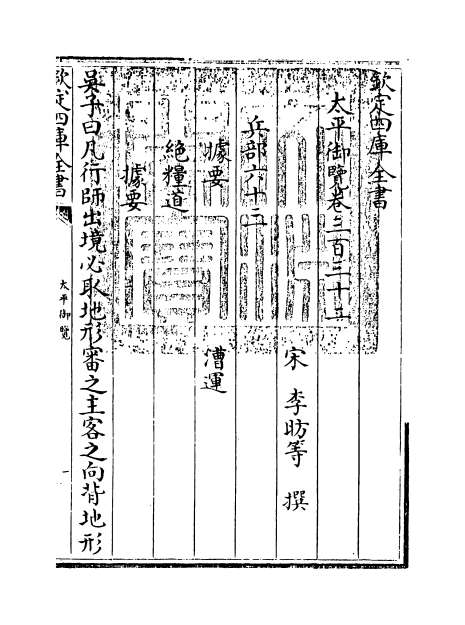 欽定四庫全書
太平御覽卷三百三十二
宋 李昉等 撰
兵部六十三
據要 漕運
絶糧道
據要
吳子曰凡行師出境必取地形審之主客之向背地形
欽定四庫全書
太平御覽
一